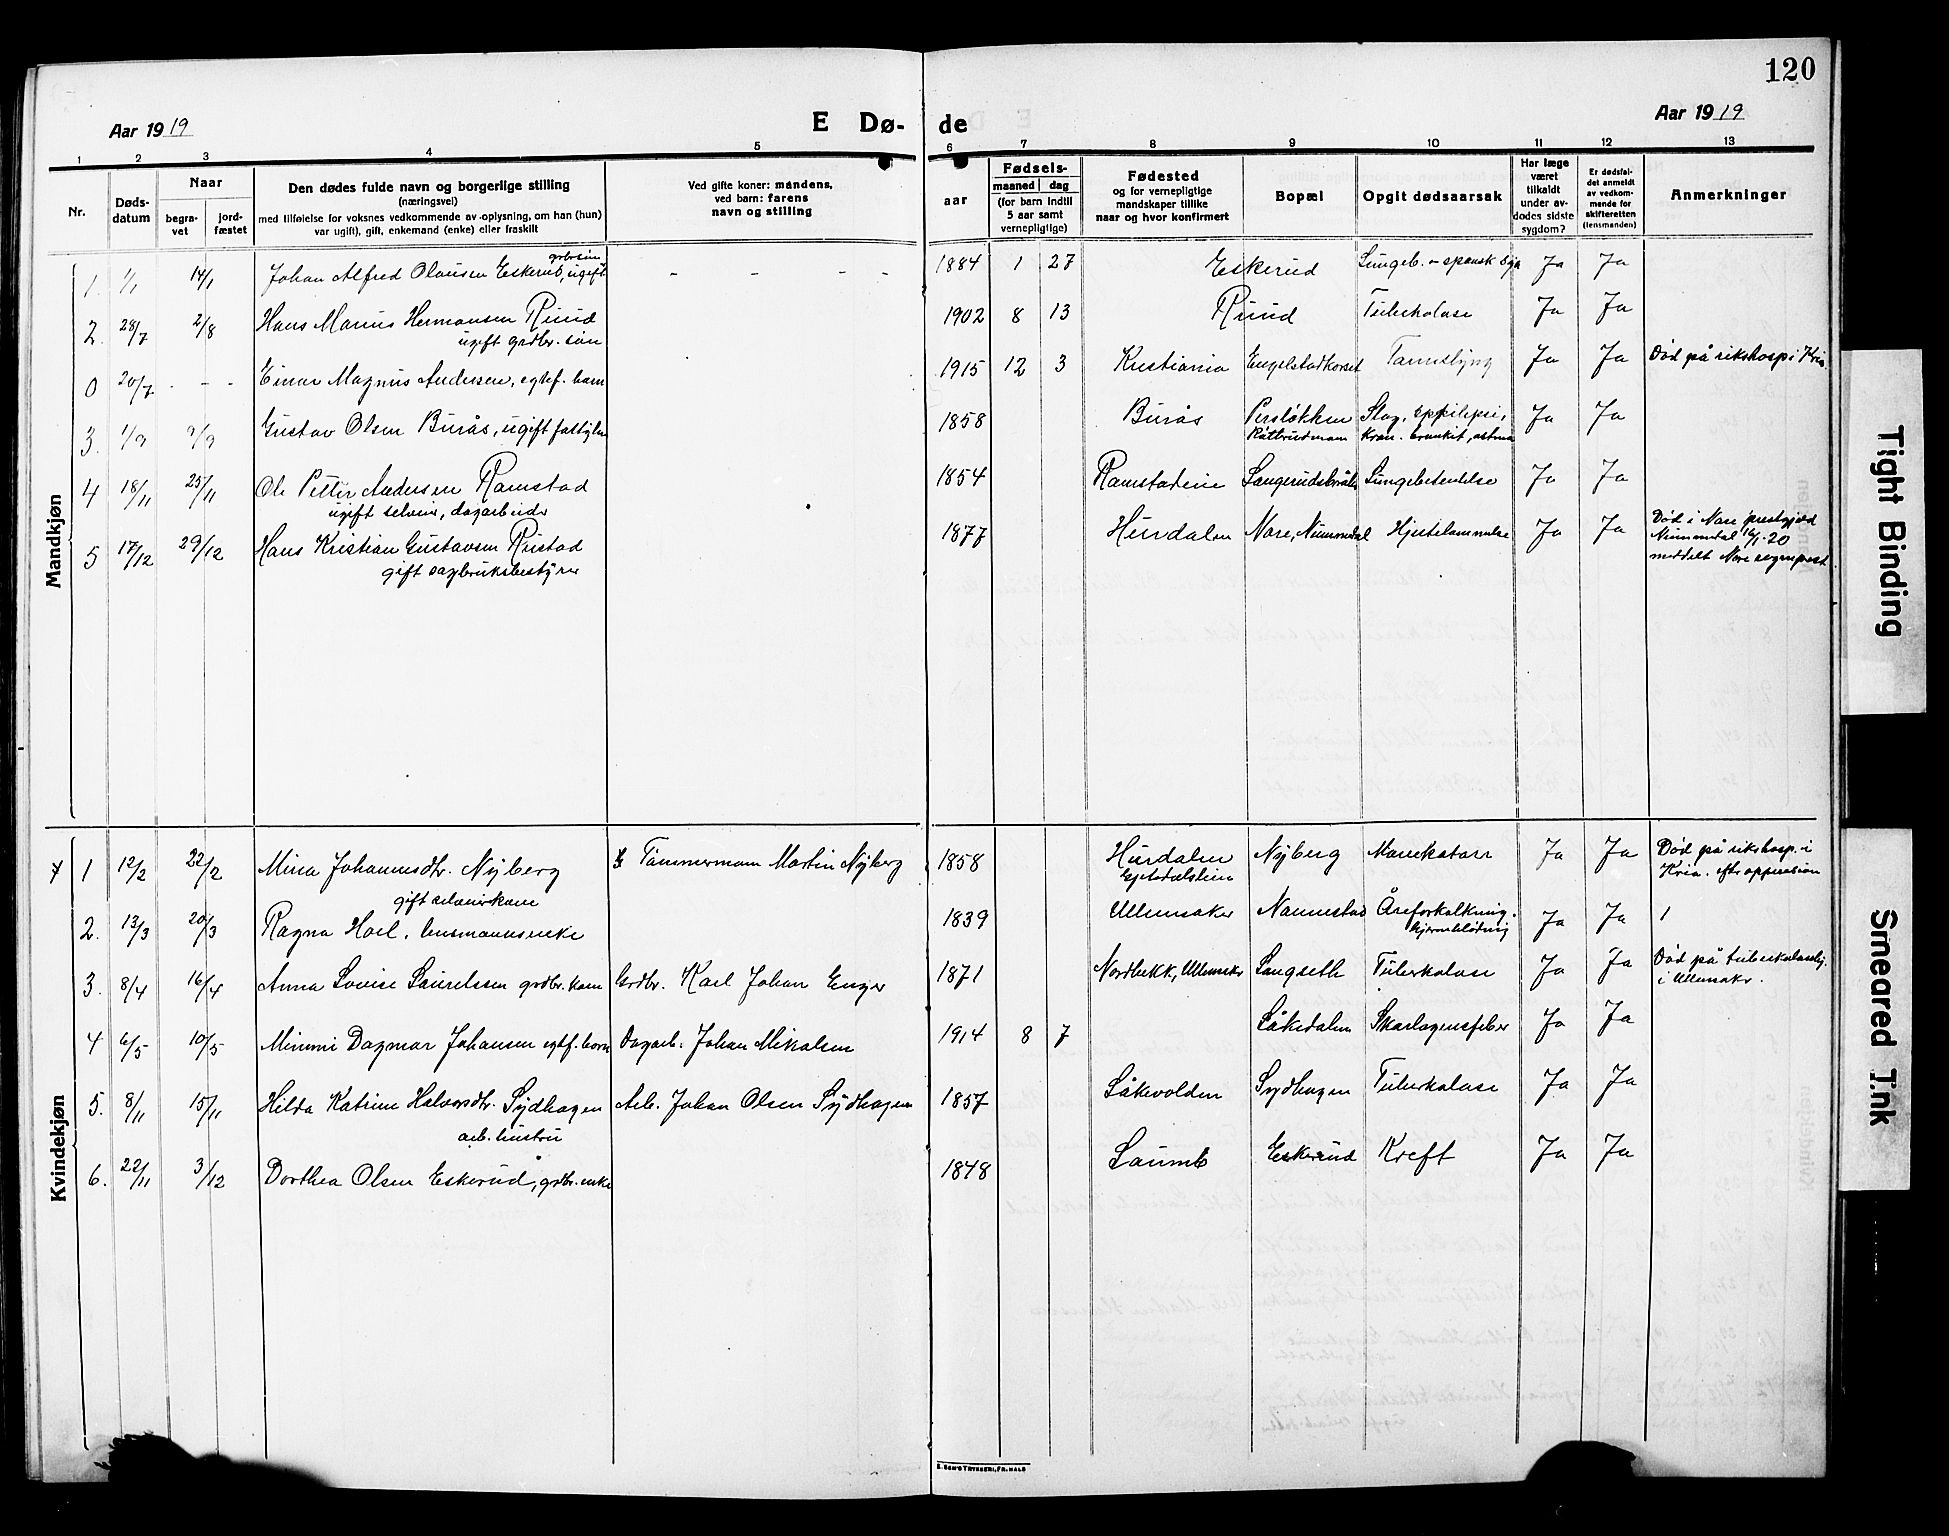 120
Aar 1919
E Dø-
de
Aar 1919
1 2 3 4 5 6 7 8 9 10 11 12 13
Nr.
Døds-
datum
Naar
begra-
vet
jord-
fæstet
Den dødes fulde navn og borgerlige stilling
(næringsvei)
med tilføielse for voksnes vedkommende av oplysning, om han (hun)
var ugift), gift, enkemand (enke) eller fraskilt
Ved gifte koner: mandens,
ved barn: farens
navn og stilling
aar
Fødsels-
maaned dag
(for barn indtil
5 aar samt
vernepligtige)
Fødested
og for vernepligtige
mandskaper tillike
naar og hvor konfirmert
Bopæl
Opgit dødsaarsak
Har læge
været
tilkaldt
under av-
dødes sidste
sygdom?
Er dødsfal-
det anmeldt
av vedkom-
mende for
skifteretten
(lensmanden)
Anmerkninger
Mandkjøn
1. 1/1 14/1 Johan Alfred Olausen Eskerud, ugift - - - - 1884 1 27 Eskerud Lungeb. - spansk syke Ja Ja
2. 28/7 2/8 Hans Marius Hermansen Ruud 1902 8 13 Ruud Tuberkulose Ja Ja
ugift grdbr. søn
0 20/7 - - - Einar Magnus Andersen, egtef. barn 1915 12 3 Kristiania Engelstadkorset Ja Ja Død på rikshosp i Kria
3. 1/9 9/9 Gustav Olsen Burås, ugift fattiglem 1858 Burås Persløkken Slag, eppilepsi, Ja Ja
Kron. bronkit, astma
4 18/11 25/11 Ole Petter Andersen Ramstad 1854 Ramstadeie Lungebetendelse Ja Ja
ugift selveier, dagarbeider
5 17/12 29/12 Hans Kristian Gustavsen Rustad 1877 Hurdalen Nore, Nummedal Hjertelammelse Ja Ja Død i Nore prestgjeld
gift sagbruksbestyrer
Nummedal 16/1-20
meddelt Nore sogneprest.
Kvindekjøn
1 12/2 22/2 Mina Johannesdtr. Nyberg Tømmermann Martin Nyberg 1858 Hurdalen Nyberg Mavekatarr Ja Ja Død på rikshosp. i
gift selveierkone
Kria. efter opperasion
2. 13/3 20/3 Ragna Hoel, lensmannsenke 1839 Ullensaker Nannestad Åreforkalkning. Ja Ja
hjerneblødning
3. 8/4 16/4 Anna Lovise Lauretssen grdbr. kone Grdbr. Karl Johan Enger 1871 Nordbekk, Ullensaker Langseth Tuberkulose Ja Ja Død på tuberkulosehj.
i Ullensaker.
4 6/5 10/5 Mimmi Dagmar Johansen egtf. barn Dagarb. Johan Mikalsen 1914 8 7 Låkedalen Skarlagensfeber Ja Ja
5. 8/11 15/11 Hilda Katrine Halvorsdtr. Sydhagen Arb. Johan Olsen Sydhagen 1857 Låkevolden Sydhagen Tuberkulose Ja Ja
arb. hustru
6. 22/11 3/12 Dorthea Olsen Eskerud, grdbr. enke 1848 Laumb Eskerud Kreft Ja Ja
Tight Binding
Smeared Ink